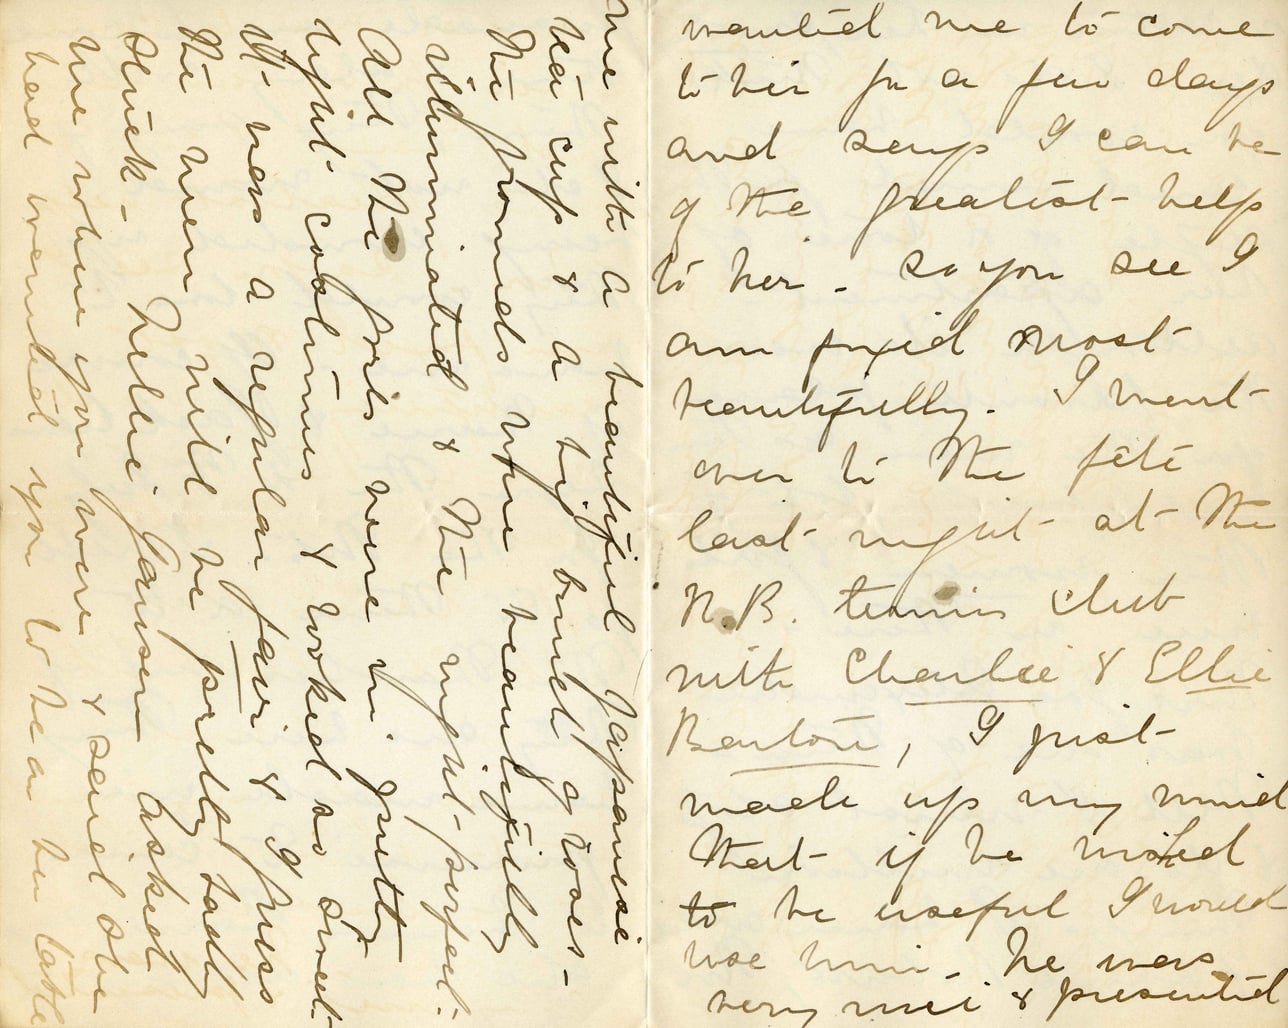 wanted me to come
to her for a few days
and says I can be
of the greatest help
to her - so you see I
am fixed most
beautifully. I went
over to the fête
last night at the
N.B. tennis club
with Charlie & Ellie
Barton, I just
made up my mind
that if he wished
to be useful I would
use him - he was
very nice & presented
me with a beautiful Japanese
tea cup & a big bunch of roses -
The grounds were beautifully
illuminated & the night perfect.
All the girls were in pretty
light costumes & looked so sweet -
It was a regular fair & I guess
the men will be pretty badly
stuck - Nellie Jansen asked
me where you were & said she
had wanted you to be at her table